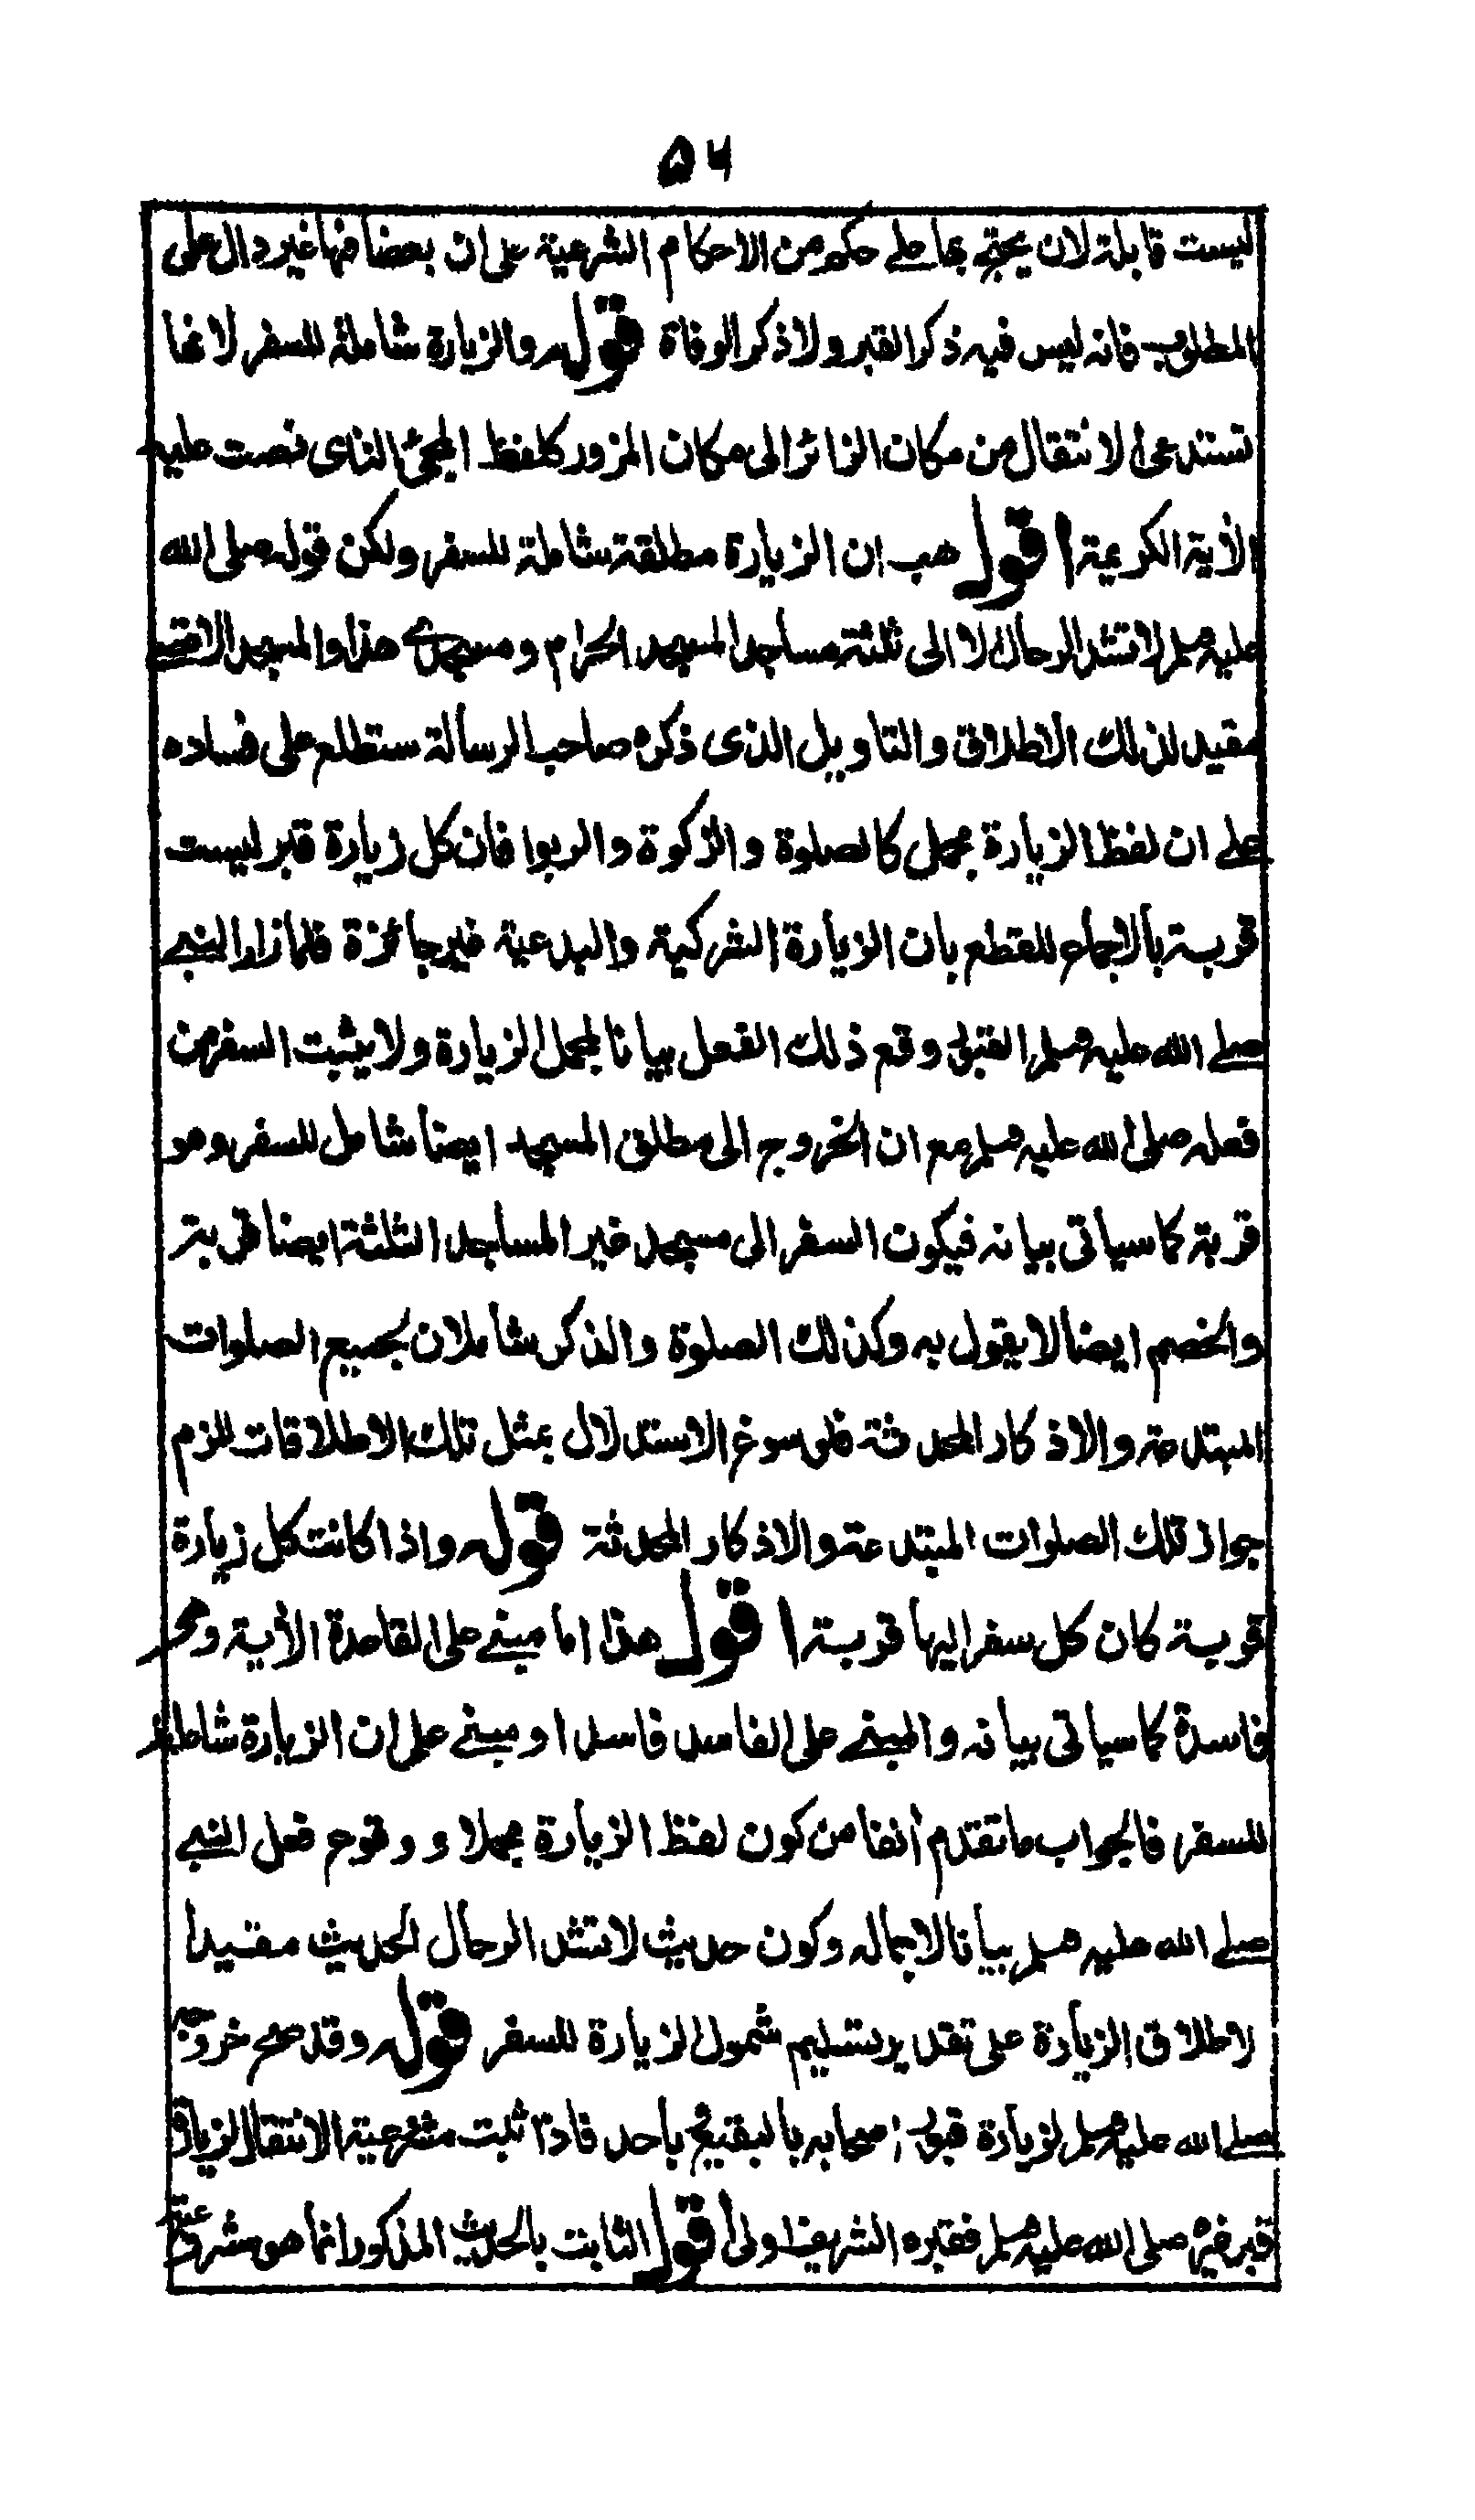 ۵۴
ليست قابلة لان يحتج بها على حكم من الاحكام الشرعية على ان بعضا منها غير دال على
المطلوب فانه ليس فيه ذكر القبر ولا ذكر الوفاة قوله والزيارة شاملة للسفر لانها
تستدعى الانتقال من مكان الزائر الى مكان المزور كلفظ المجئ الذى نصت عليه
الآية الكريمة اقول هب ان الزيارة مطلقة شاملة للسفر ولكن قوله صلى الله
عليه وسلم لا تشد الرحال الا الى ثلثة مساجد المسجد الحرام ومسجدى هذا والمسجد الاقصے
مقيد لذلك الاطلاق والتاويل الذى ذكره صاحب الرسالة ستطلع على فساده
على ان لفظ الزيارة مجمل كالصلوة والزكوة والربوا فان كل زيارة قبر ليست
قربة بالاجماع للقطع بان الزيارة الشركية والبدعية غير جائزة فلما زار النبے
صلے الله عليه وسلم القبور وقع ذلك الفعل بيانا لمجمل الزيارة ولا يثبت السفر من
فعله صلى الله عليه وسلم مع ان الخروج الى مطلق المسجد ايضا شامل للسفر وهو
قربة كما سياتى بيانه فيكون السفر الى مسجد غير المساجد الثلثة ايضا قربة
والخصم ايضا لا يقول به وكذلك الصلوة والذكر شاملان بجميع الصلوات
المبتدعة والاذكار المحدثة فلو سوغ الاستدلال بمثل تلك الاطلاقات للزم
جواز تلك الصلوات المبتدعة والاذكار المحدثة قوله واذا كانت كل زيارة
قربة كان كل سفر اليها قربة اقول هذا اما مبنے على القاعدة الآتية وهى
فاسدة كما سياتى بيانه والمبنے على الفاسد فاسد او مبنے على ان الزيارة شاملة
للسفر فالجواب ما تقدم آنفا من كون لفظ الزيارة مجملا و وقوع فعل النبے
صلے الله عليه وسلم بيانا لاجماله وكون حديث لا تشد الرحال الحديث مقيدا
لاطلاق الزيارة على تقدير تسليم شمول الزيارة للسفر قوله وقد صح خروجه
صلے الله عليه وسلم لزيارة قبور اصحابه بالبقيع باحد فاذا ثبت مشروعية الانتقال لزيارة
قبر غيره صلى الله عليه وسلم فقبره الشريف اولى اقول الثابت بالحديث المذكور انما هو مشروعية